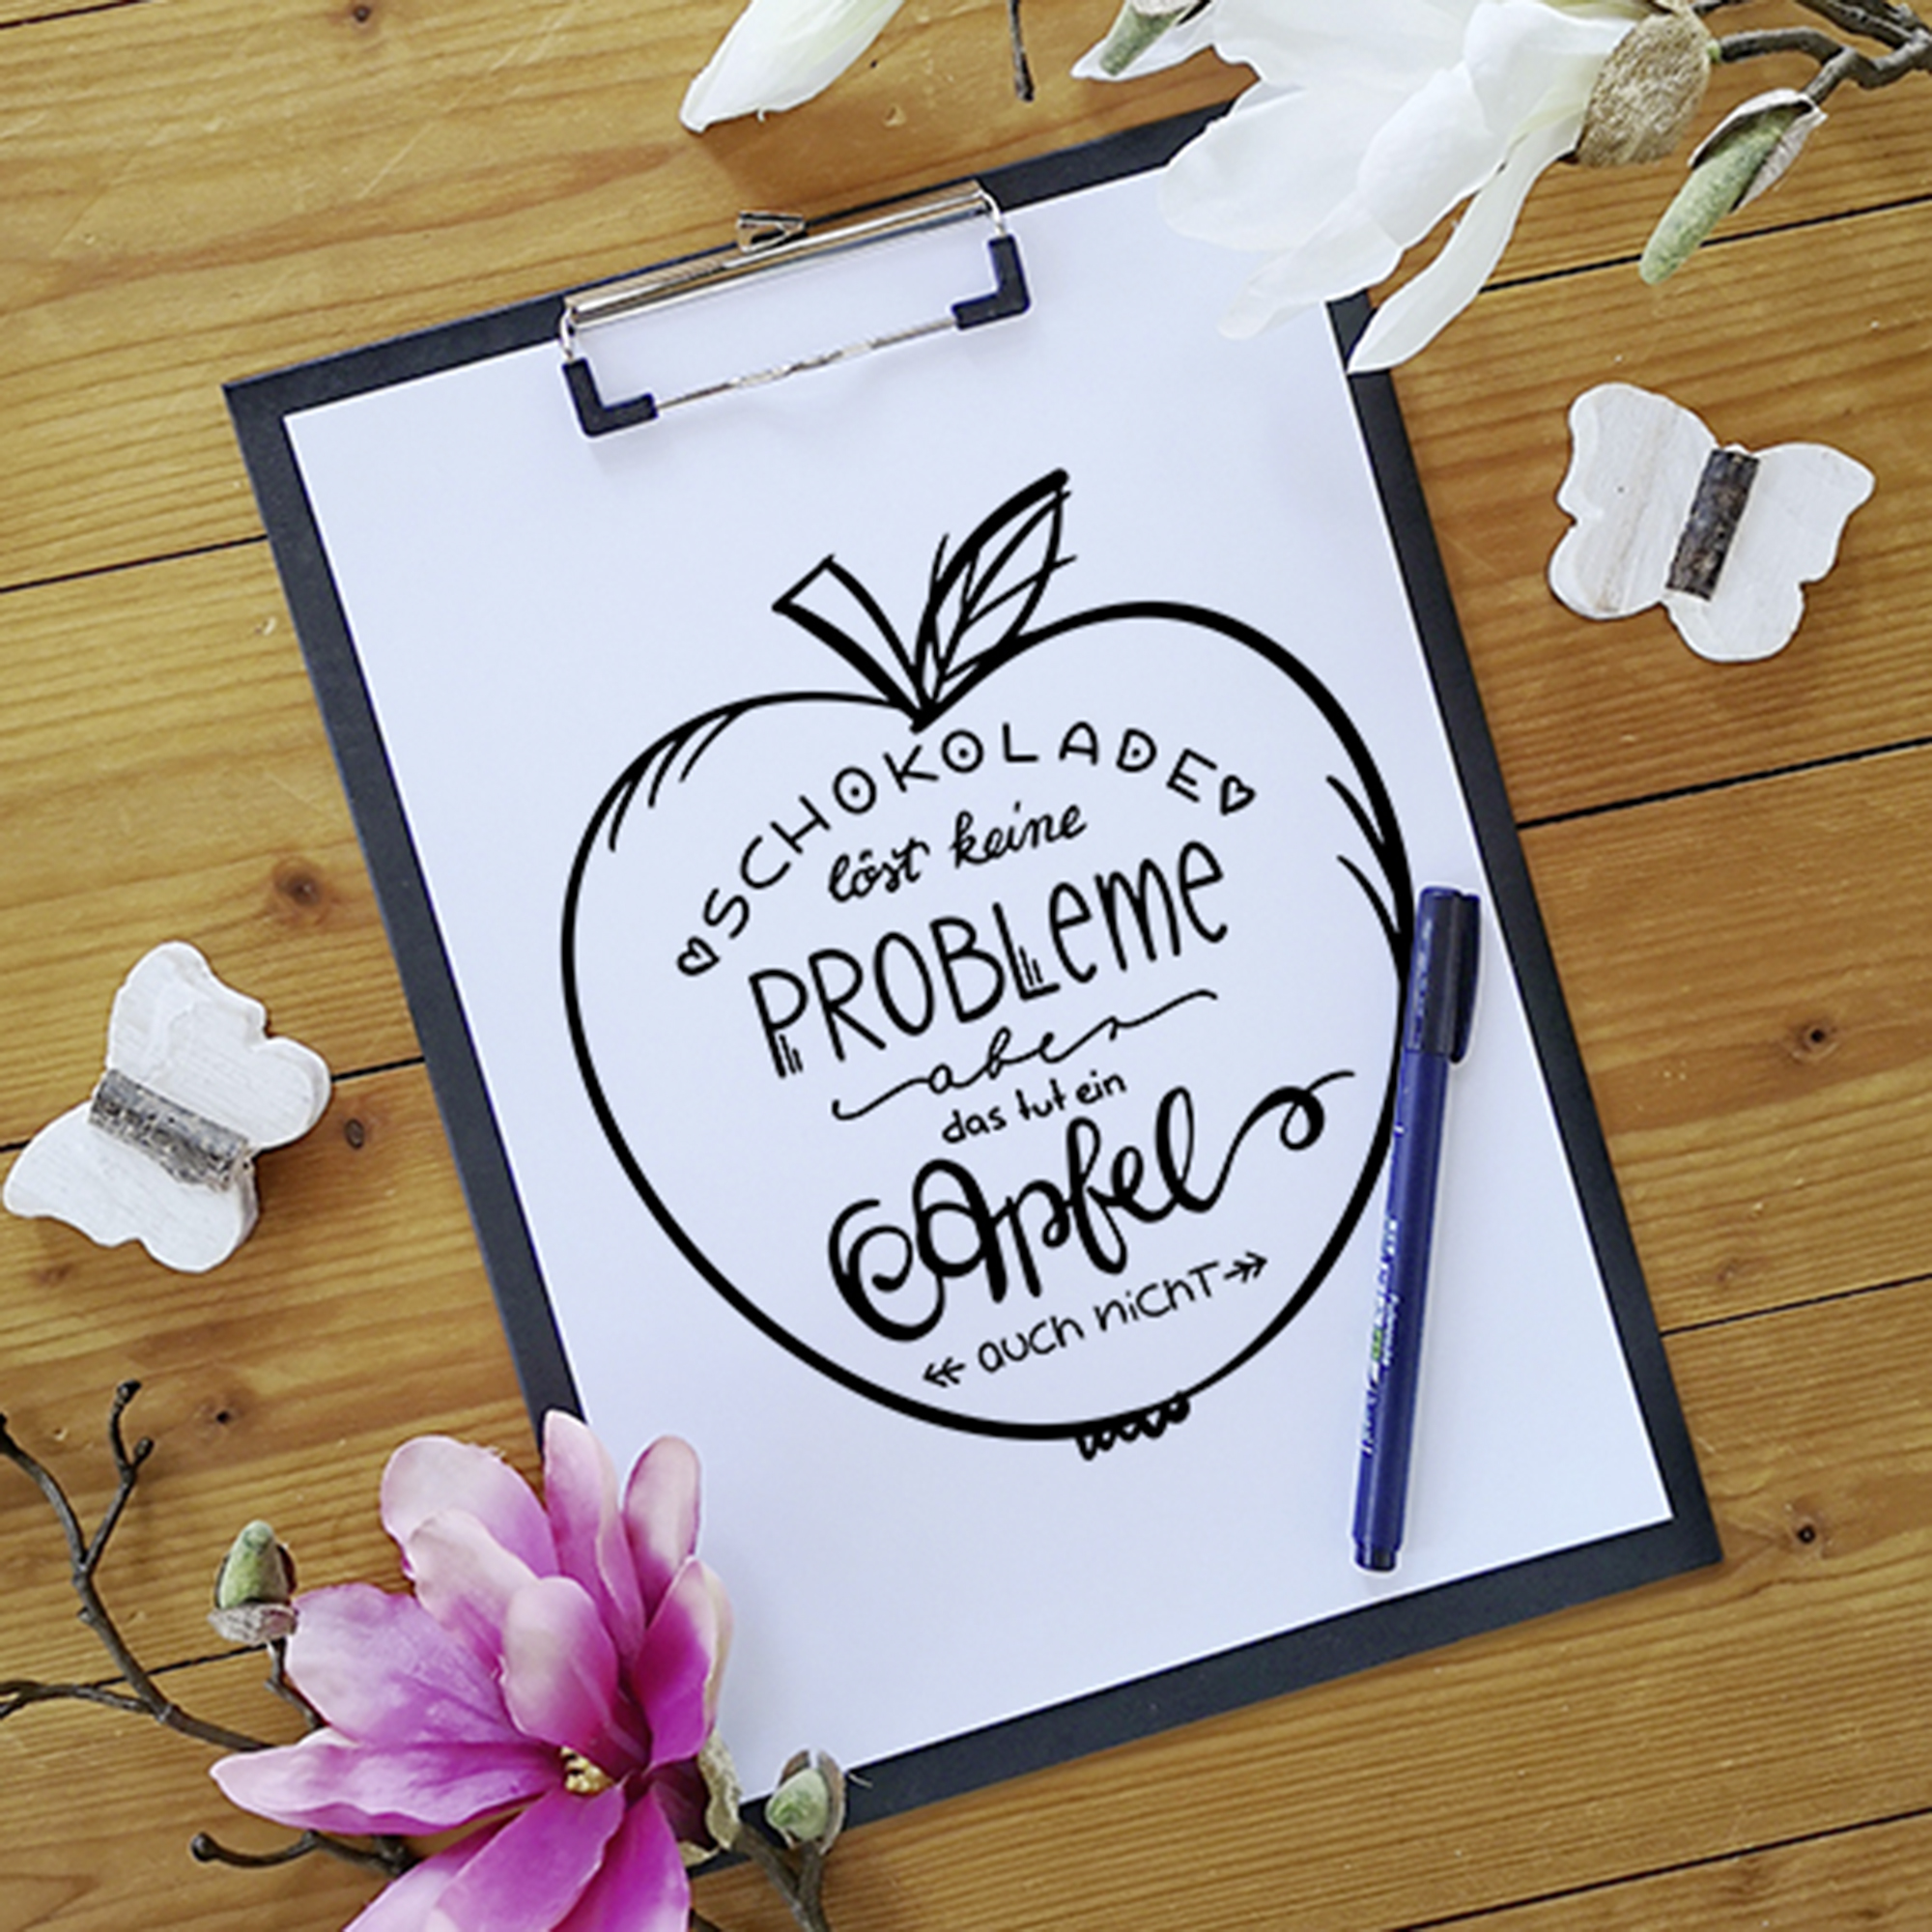 SCHOKOLADE
löst keine
PROBLeme
aber
das tut ein
Apfel
auch nichT